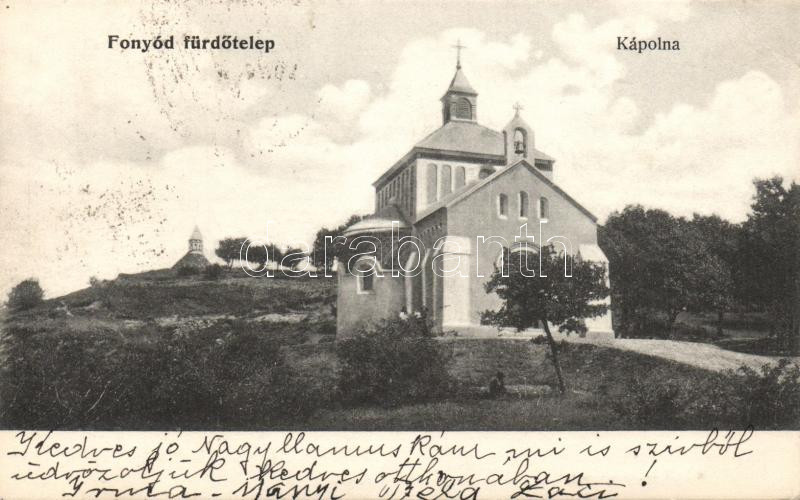 Fonyód fürdőtelep
Kápolna
darabanth
Kedves jó Nagyllamuskám mi is szivből
üdvözöljük kedves otthonában!
Irma - Mányi Géla Laci